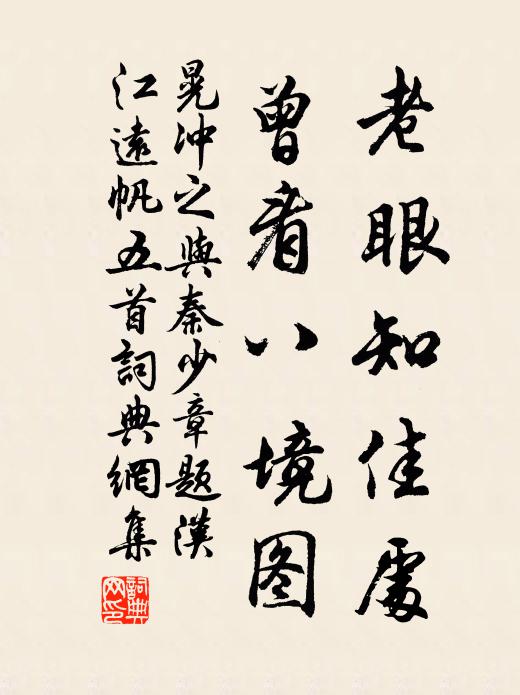 老眼知佳處
曾看八境图
晃冲之與秦少章題漢
江遠帆五首詞典網集
詞典網印